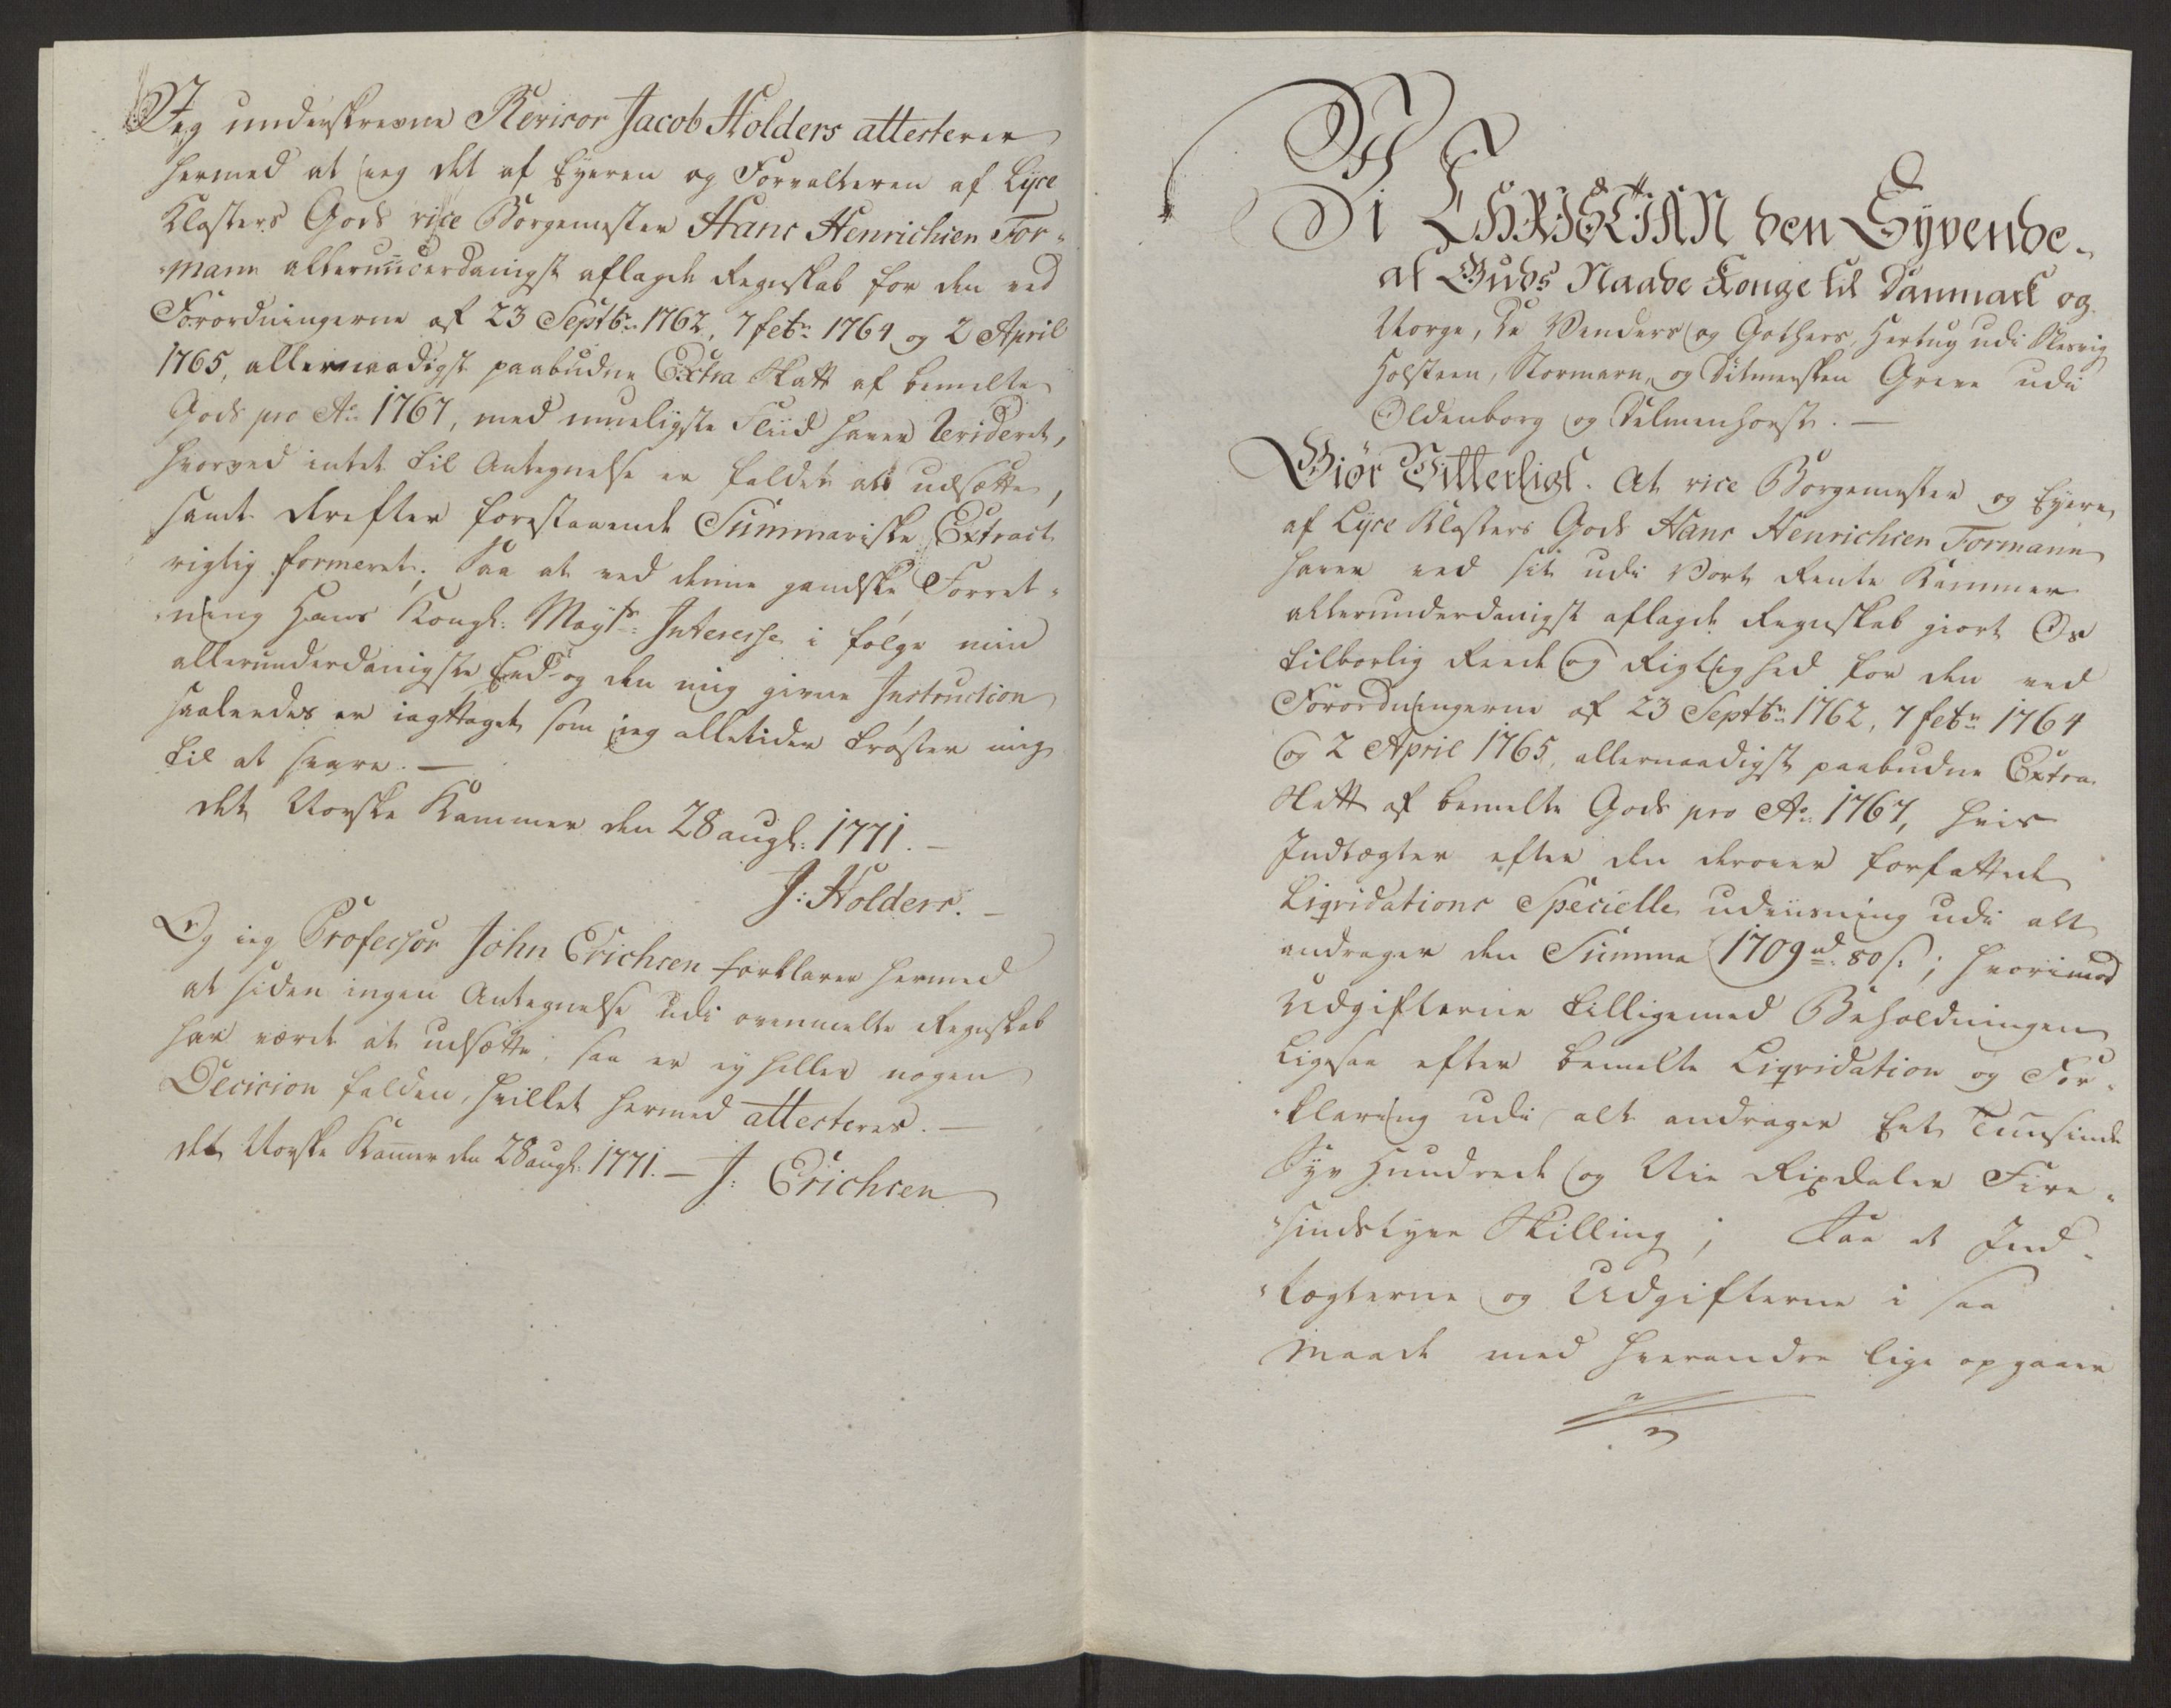 Jeg underskrevne Revisor Jacob Holders attesterer
hermed at jeg det af Eyeren og Forvalteren af Lyse
Klosters Gods vice Borgemester Hans Henrichsen For-
mann allerunderdanigst aflagde Regnskab for den ved
Forordningerne af 23 Septbr. 1762, 7 febr. 1764 og 2 April
1765, allernaadigst paabudne Extra Skatt af bemelte
Gods pro Ao. 1767, med mueligste Fliid haver revideret,
hvorved intet til Antegnelse er faldet at udsætte,
samt derefter forestaaende Summariske Extract
rigtig formeret; Saa at ved denne gandske Forret-
ning Hans Kongl: Mayts: Interesse i følge min
allerunderdanigste Eed og den mig givne Instruction
saaledes er iagttaget som jeg alletider trøster mig
til at svare. —
Det Norske Kammer den 28 augl: 1771. —
J: Holders. —
Og ieg Professor John Erichsen forklarer hermed
at siden ingen Antegnelse udi ovenmelte Regnskab
har været at udsætte, saa er ey heller nogen
Decision falden, hvilket hermed attesteres. —
Det Norske Kamer den 28 augl: 1771. — J: Erichsen
Vi CHRISTIAN den Syvende.
af Guds Naade Konge til Danmark og
Norge, De Venders og Gothers, Hertug udi Slesvig
Holsteen, Stormarn, og Ditmersken Greve udi
Oldenborg og Delmenhorst. —
Giør Vitterligt. At vice Borgemester og Eyere
af Lyse Klosters Gods Hans Henrichsen Formann
haver ved sit udi Vort Rente Kammer
allerunderdanigst aflagde Regnskab giort Os
tilbørlig Reede og Rigtighed for den ved
Forordningerne af 23 Septbr. 1762, 7 febr. 1764
og 2 April 1765, allernaadigst paabudne Extra
Skatt af bemelte Gods pro Ao. 1767, hvis
Indtægter efter den derover forfattede
Liqvidations Specielle udviisning udi alt
andrager den Summa 1709 rd. 80 s.; hvorimod
Udgifterne tilligemed Beholdningen
Ligesaa efter bemelte Liqvidation og For-
klaring udi alt andrager Eet Tuusinde
Syv Hundrede og Nie Rixdaler Fire-
sindstyve Skilling; Saa at Ind-
tægterne og Udgifterne i saa
Maade med hverandre lige opgaaer